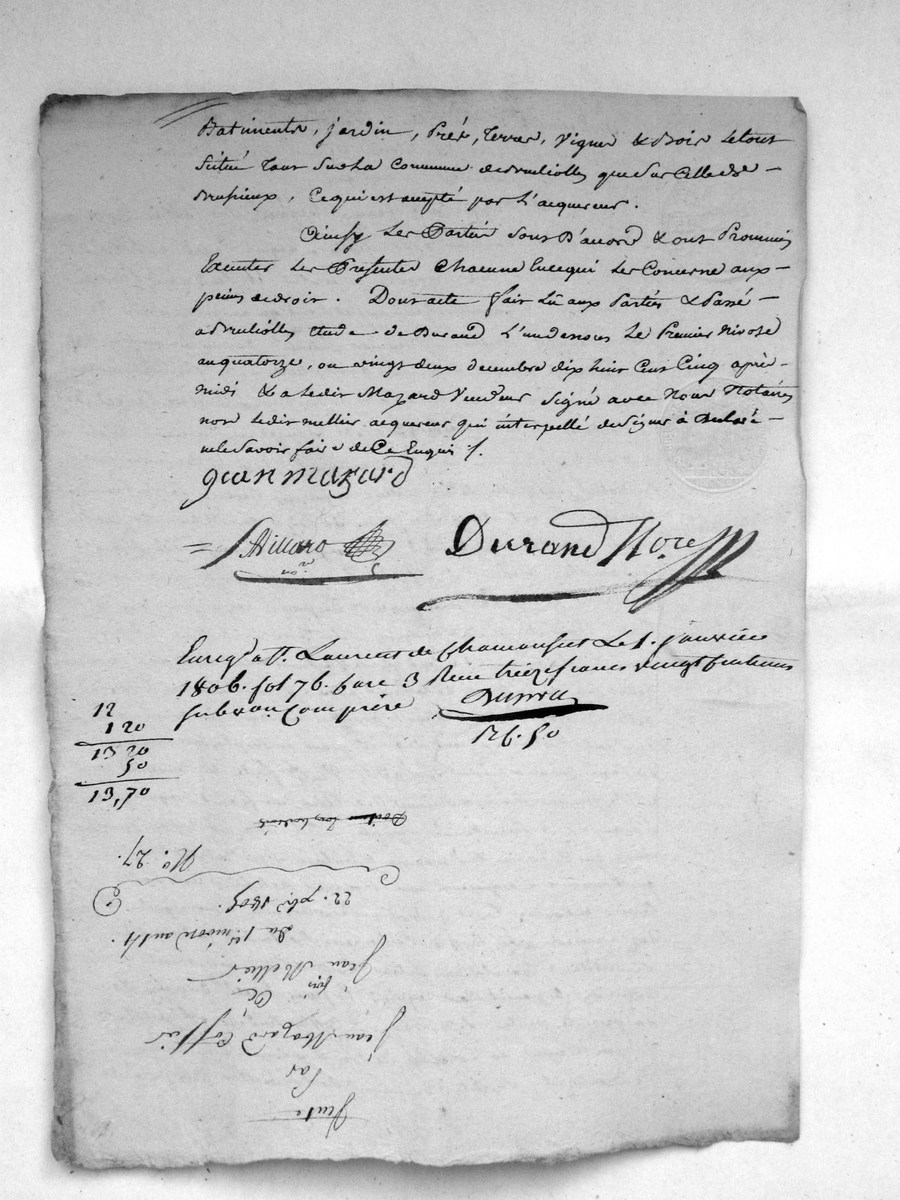 Batiments, jardin, Prés, terres, vigne & Bois le tout
situé tant sur la commune de Brulliolles que sur celle de
Brusieux, ce qui est accepté par l'acquereur.
Ainsy les Parties sont D'accord & ont Prommis
Executer les Presentes chacune en ce qui les Concerne aux
peines de droit. Dont acte fait lû aux Parties & Passé
a Brulliolles etude de Durand L'un de nous Le Premier nivose
an quatorze, ou vingt deux decembre dix huit cent Cinq après
midi & a ledit Mazard Vendeur signé avec Nous Notaires
non ledit mellier acquereur qui interpellé de signer à declaré
ne le savoir faire de Ce Enquis /.
jean mazard
Durand Nore
Enregé a St. Laurent de Chamousset Le 1. janvier
1806. fol 76. Case 3 Reçu treize francs vingt Centimes
subvon Comprise
12
1 20
13 20
50
13,70
126.50
No. 27.
22. xbre 1805.
Du 1er nivose an 14.
Jean Mellier
Jean Mazard
Par
Vente